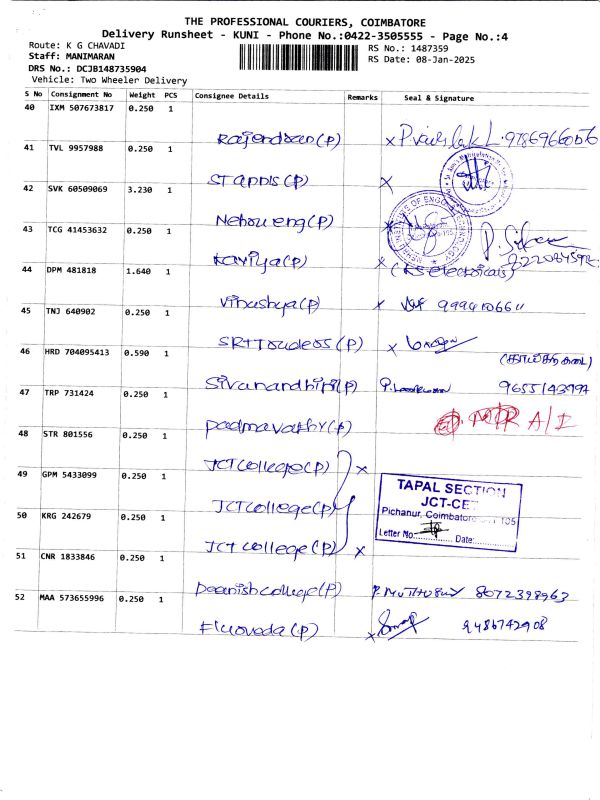 THE PROFESSIONAL COURIERS, COIMBATORE
Delivery Runsheet - KUNI - Phone No.:0422-3505555 - Page No.:4
Route: K G CHAVADI
RS No.: 1487359
Staff: MANIMARAN
RS Date: 08-Jan-2025
DRS No.: DCJB148735904
Vehicle: Two Wheeler Delivery
S No Consignment No Weight PCS Consignee Details Remarks Seal & Signature
40 IXM 507673817 0.250 1
Rajendran(P) x 9786966056
41 TVL 9957988 0.250 1
St annis(P) x
42 SVK 60509069 3.230 1
Nehru eng(P) x
43 TCG 41453632 0.250 1
Kaviya(P) x (KS electricals)
44 DPM 481818 1.640 1
Vinashya(P) x 9994106611
45 TNJ 640902 0.250 1
SR+Traders(P) x
46 HRD 704095413 0.590 1
Sivanandhini(P) 9655143997
47 TRP 731424 0.250 1
padmavathy(P) A/I
48 STR 801556 0.250 1
JCT College(P) x
49 GPM 5433099 0.250 1
JCT College(P)
TAPAL SECTION
JCT-CET
Pichanur, Coimbatore 105
Letter No:............ Date:............
50 KRG 242679 0.250 1
JCT College(P) x
51 CNR 1833846 0.250 1
Deanish college(P) P. Muthusamy 8072398963
52 MAA 573655996 0.250 1
Fluoveda(P) x 9486742908